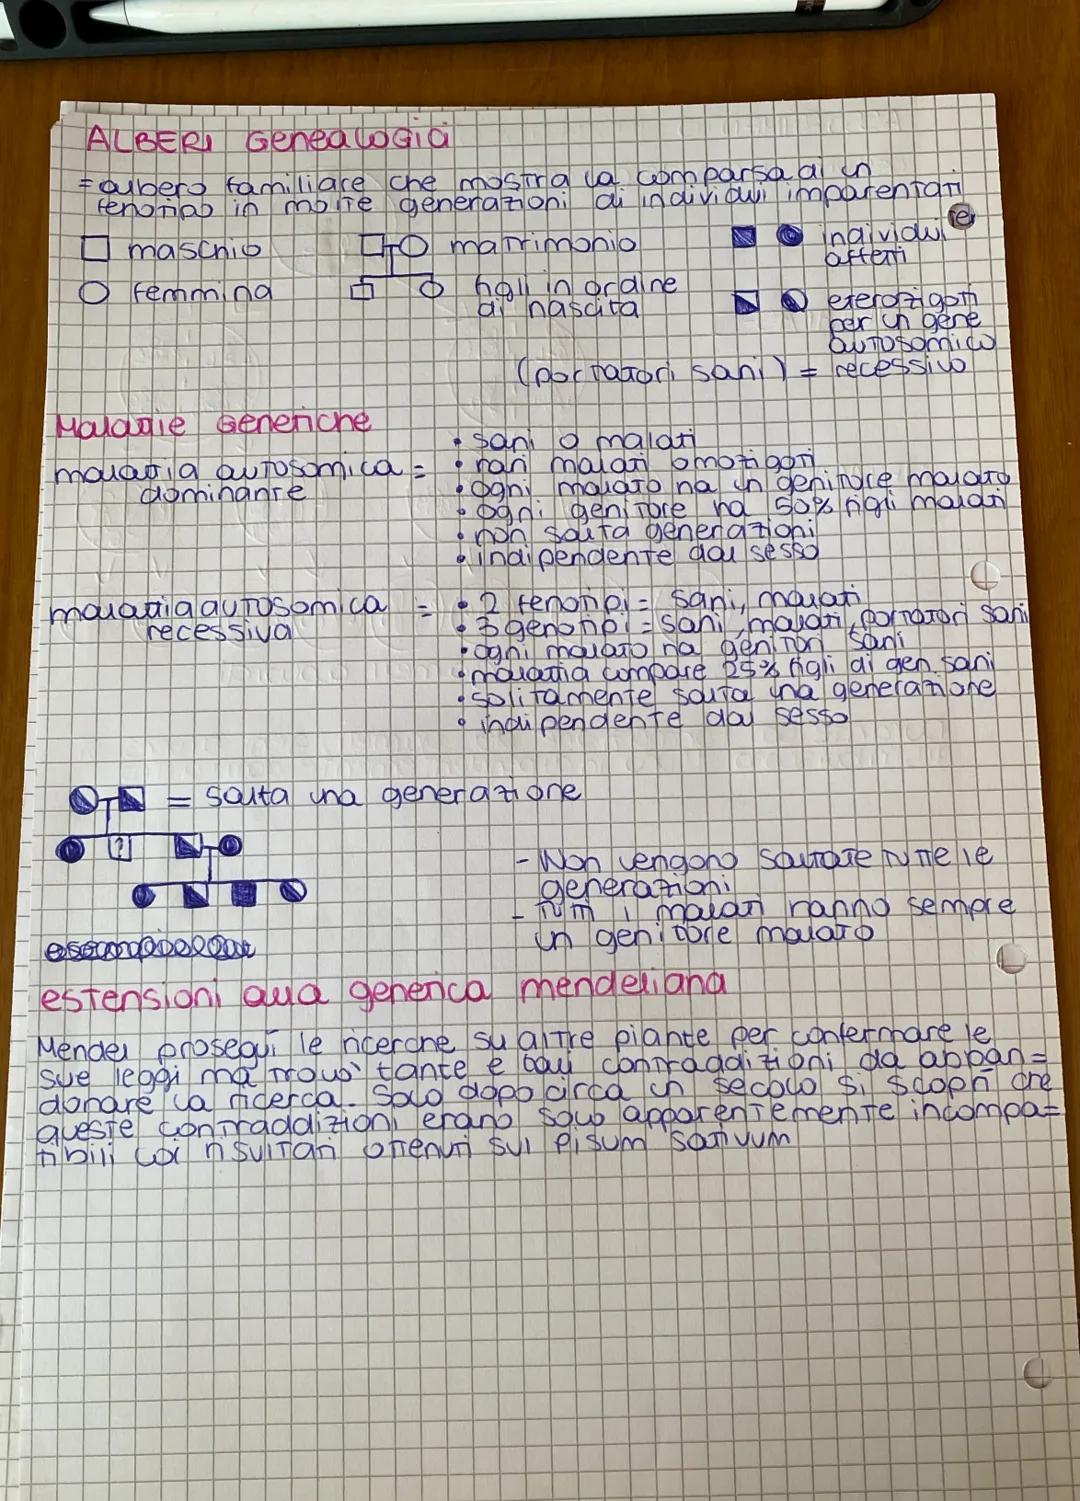 ALBERI Genealogici
= albero familiare che mostra la comparsa di un
fenotipo in molte generazioni di individui imparentati
maschio
matrimonio
individui
affetti
femmina
figli in ordine
di nascita
eterozigoti
per un gene
autosomico
(portatori sani) = recessivo
Malattie Genetiche
malattia autosomica =
dominante
• sani o malati
• rari malati omozigoti
• ogni malato ha un genitore malato
• ogni genitore ha 50% figli malati
• non salta generazioni
• indipendente dal sesso
malattia autosomica =
recessiva
• 2 fenotipi = sani, malati
• 3 genotipi = sani, malati, portatori sani
• ogni malato ha genitori sani
• malattia compare 25% figli di gen. sani
• solitamente salta una generazione
• indipendente dal sesso
= salta una generazione
?
- Non vengono saltate tutte le
generazioni
- Tutti i malati hanno sempre
un genitore malato
estensioni alla genetica mendeliana
Mendel proseguì le ricerche su altre piante per confermare le
sue leggi ma trovò tante e tali contraddizioni da abban=
donare la ricerca. Solo dopo circa un secolo si scoprì che
queste contraddizioni erano solo apparentemente incompa=
tibili coi risultati ottenuti sul Pisum sativum